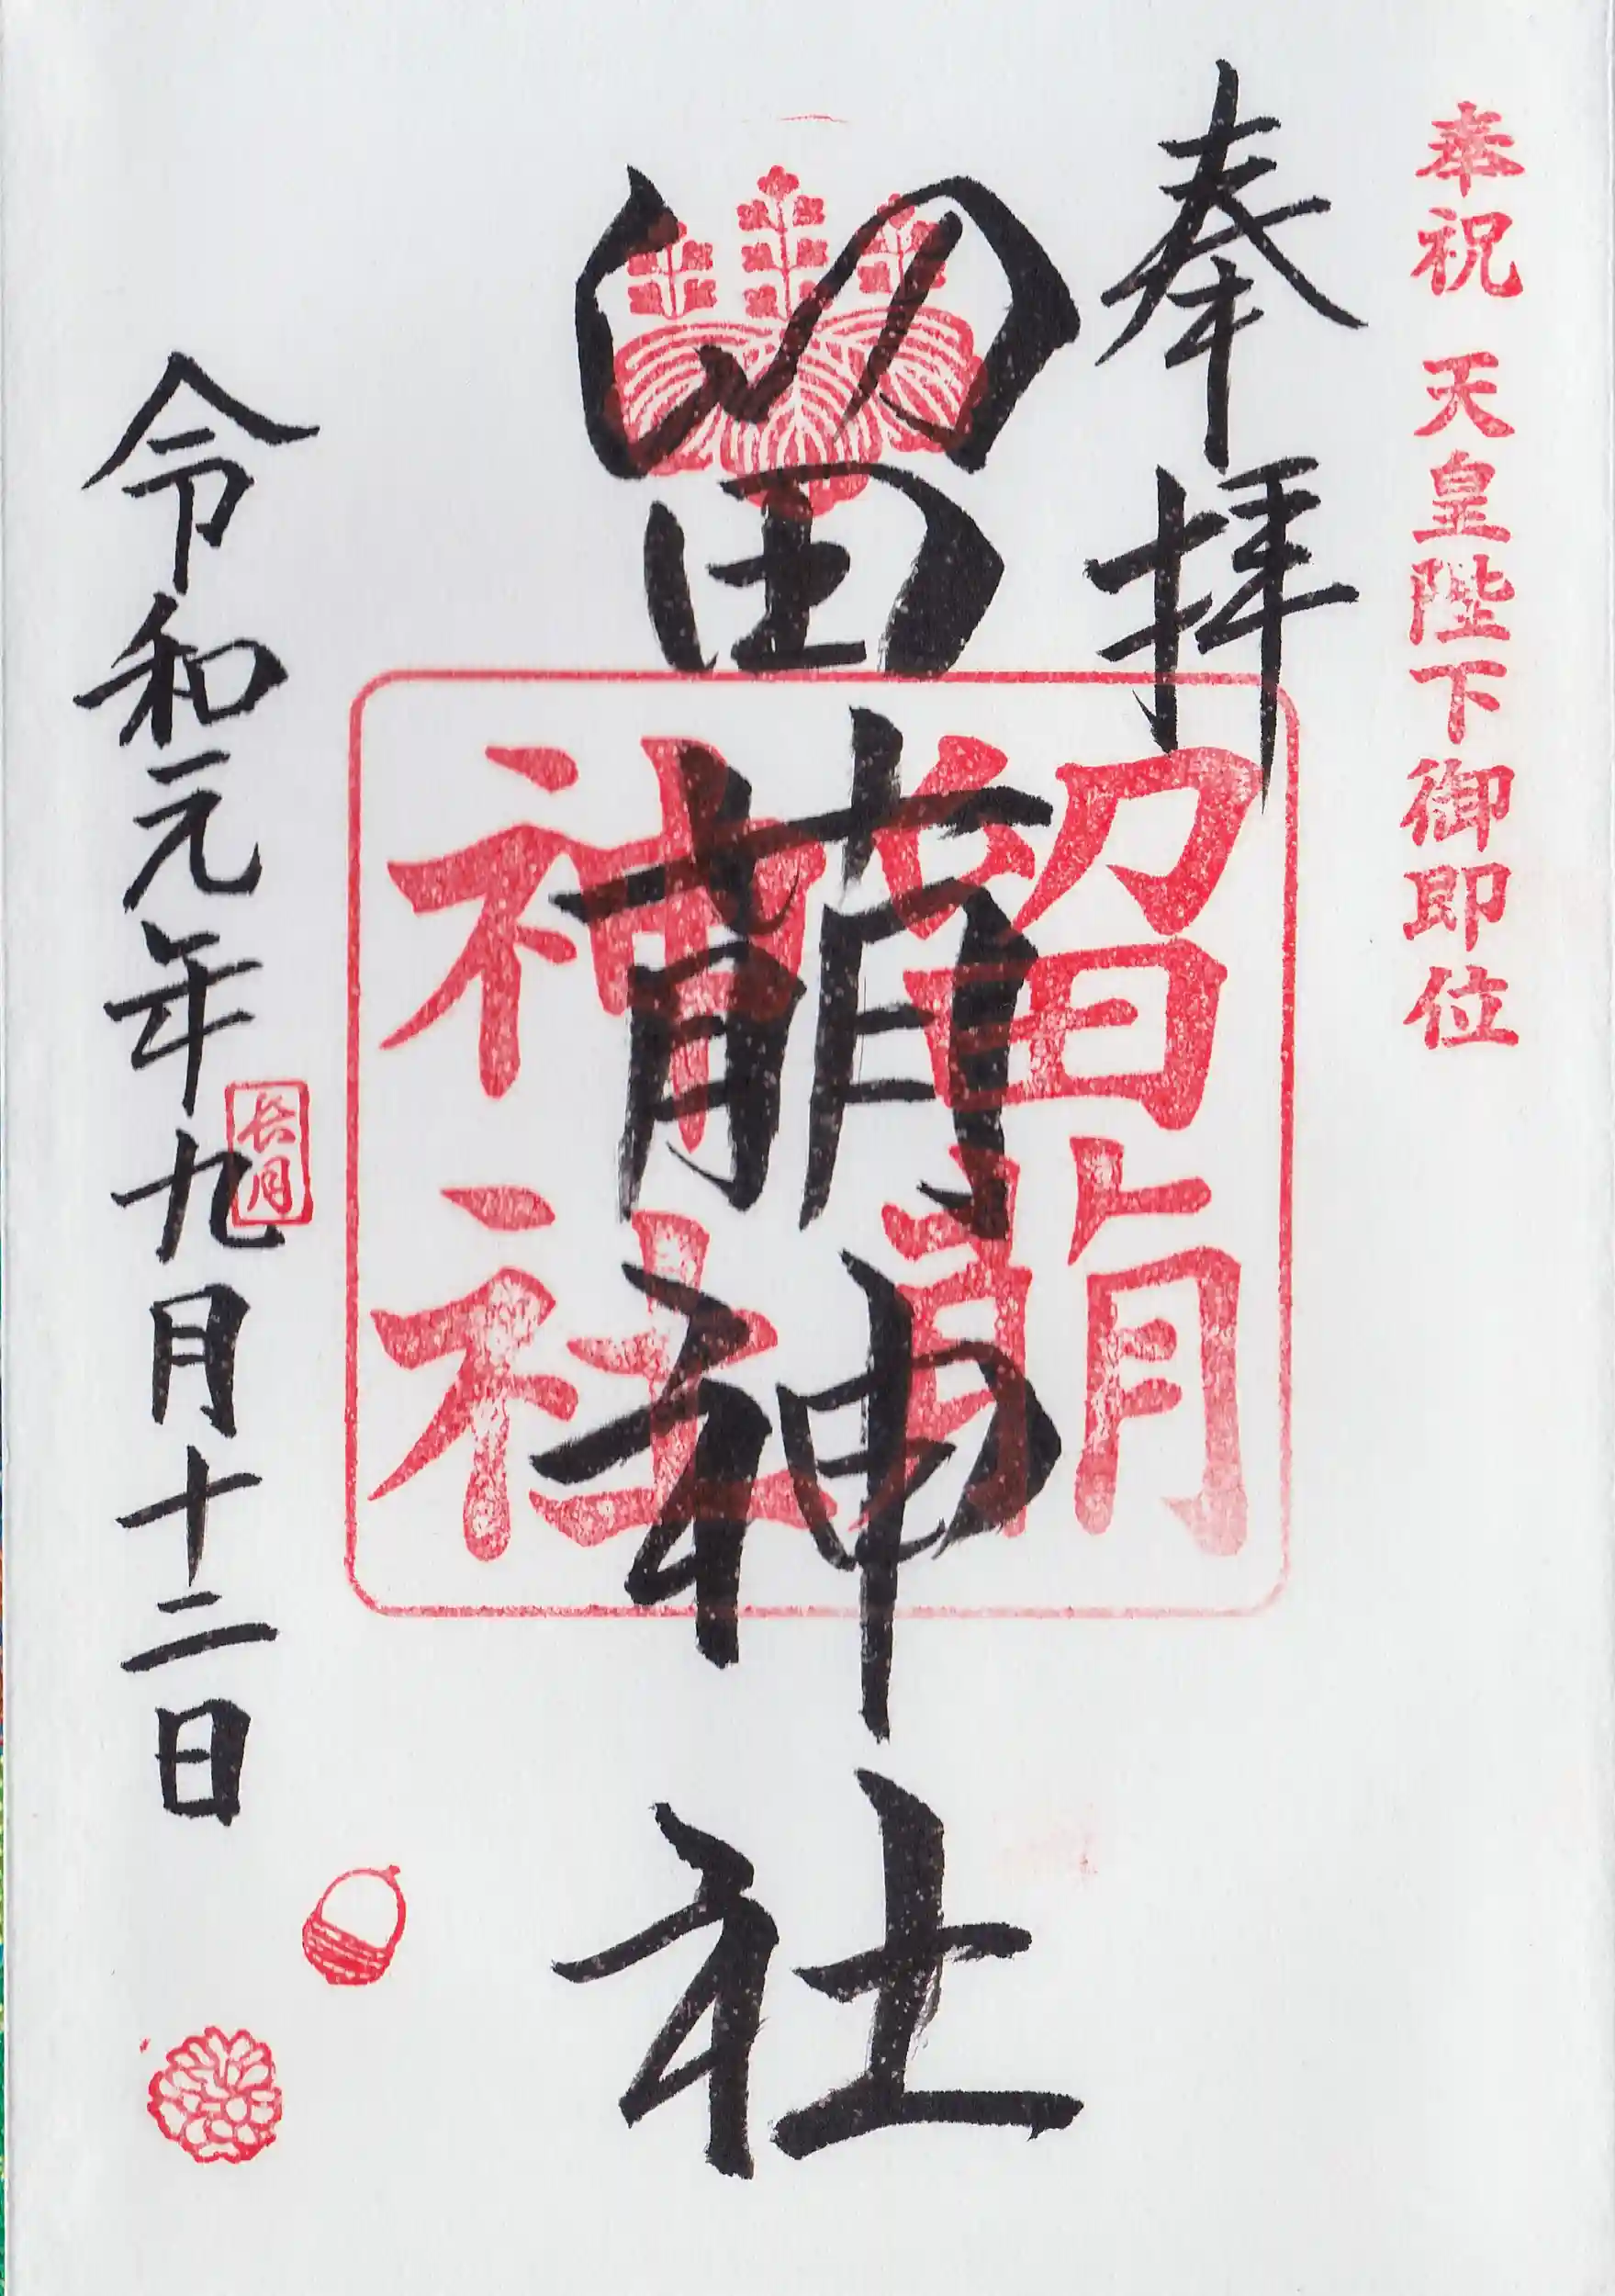 奉祝 天皇陛下御即位
奉拝
留萠神社
留萠
神社
令和元年九月十二日
長月